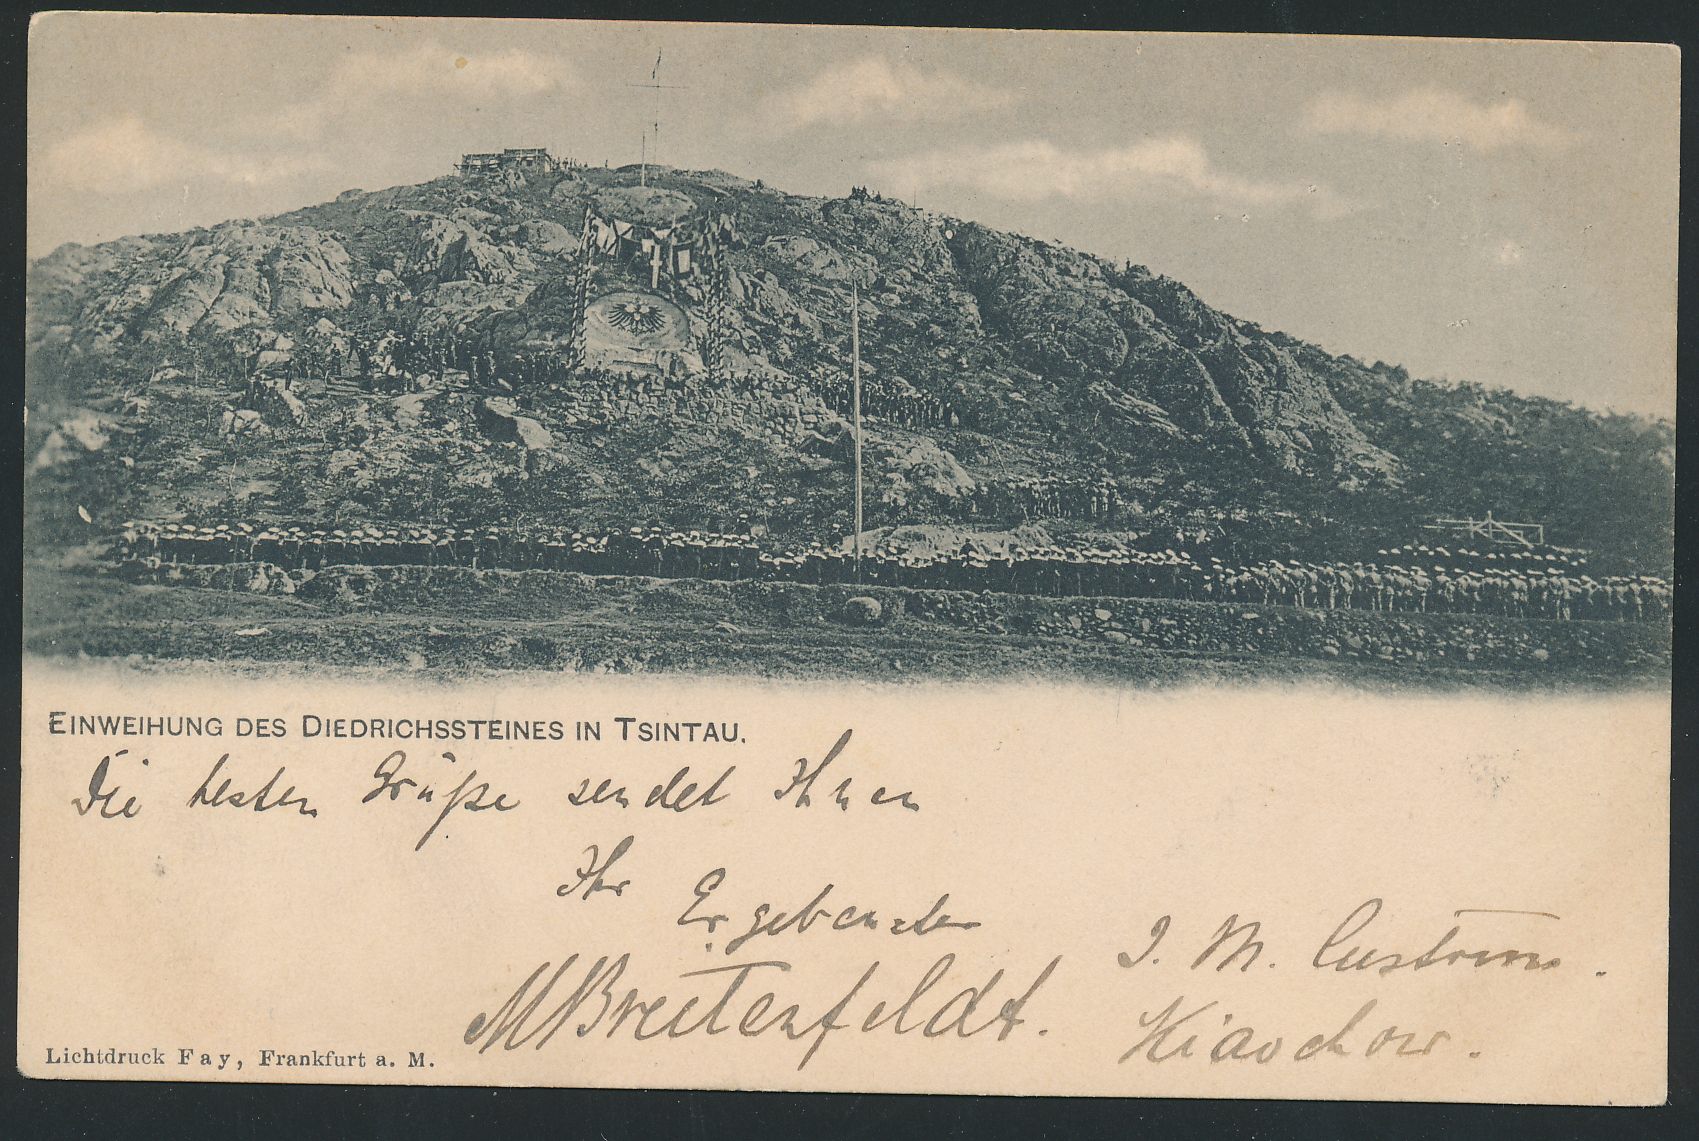 EINWEIHUNG DES DIEDRICHSSTEINES IN TSINTAU.
Die besten Grüße sendet Ihnen
Ihr Ergebenster
MBreitenfeldt.
I. M. Customs.
Kiaochow.
Lichtdruck Fay, Frankfurt a. M.